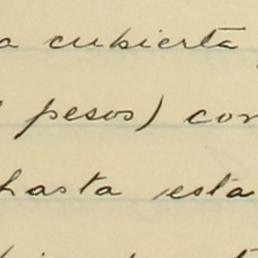 a cubierta
pesos) con
hasta esta